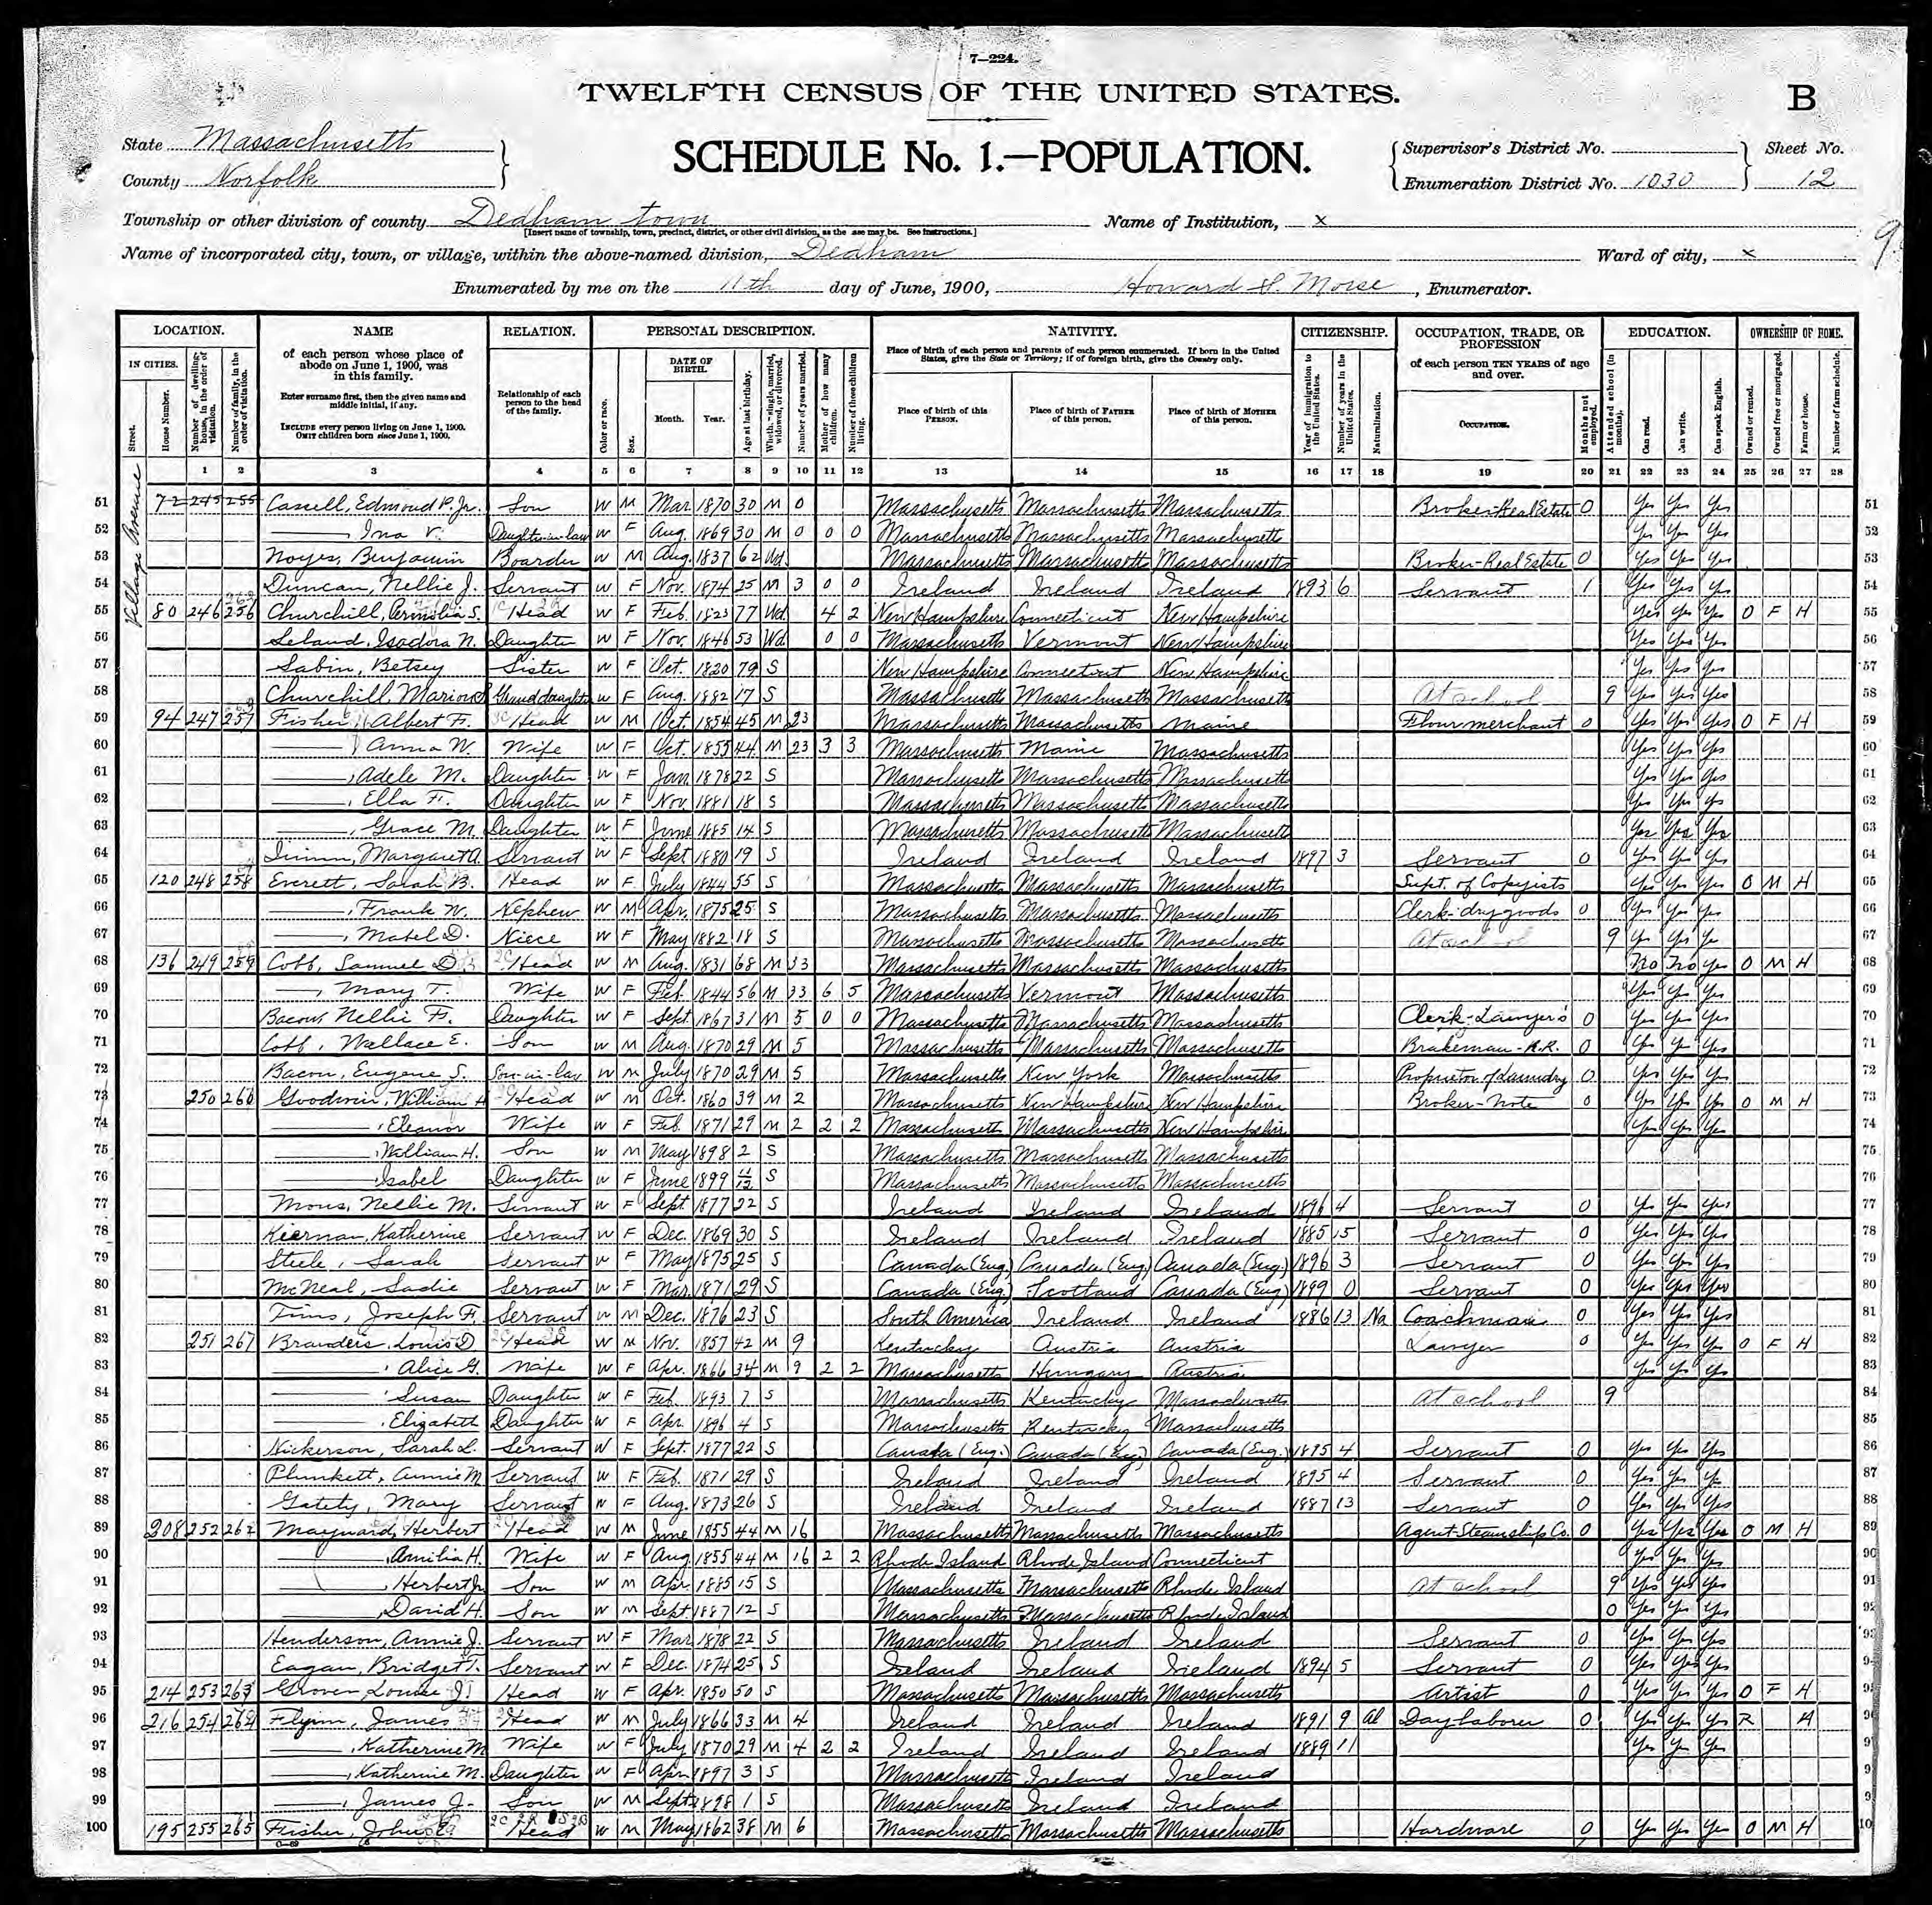 7—224.
TWELFTH CENSUS OF THE UNITED STATES.
B
State Massachusetts
SCHEDULE No. 1.—POPULATION.
Supervisor's District No.
Sheet No.
County Norfolk
Enumeration District No. 1030
12
Township or other division of county Dedham town
Name of Institution, x
[Insert name of township, town, precinct, district, or other civil division, as the case may be. See instructions.]
Name of incorporated city, town, or village, within the above-named division, Dedham
Ward of city, x
9
Enumerated by me on the 11th day of June, 1900, Howard S. Morse, Enumerator.
LOCATION. NAME RELATION. PERSONAL DESCRIPTION. NATIVITY. CITIZENSHIP. OCCUPATION, TRADE, OR PROFESSION EDUCATION. OWNERSHIP OF HOME.
IN CITIES.
Street.
House Number.
Number of dwelling-house, in the order of visitation.
Number of family, in the order of visitation.
of each person whose place of abode on June 1, 1900, was in this family.
Enter surname first, then the given name and middle initial, if any.
INCLUDE every person living on June 1, 1900.
OMIT children born since June 1, 1900.
Relationship of each person to the head of the family.
Color or race.
Sex.
DATE OF BIRTH.
Month.
Year.
Age at last birthday.
Whether single, married, widowed, or divorced.
Number of years married.
Mother of how many children.
Number of these children living.
Place of birth of each person and parents of each person enumerated. If born in the United States, give the State or Territory; if of foreign birth, give the Country only.
Place of birth of this PERSON.
Place of birth of FATHER of this person.
Place of birth of MOTHER of this person.
Year of immigration to the United States.
Number of years in the United States.
Naturalization.
of each person TEN YEARS of age and over.
OCCUPATION.
Months not employed.
Attended school (in months).
Can read.
Can write.
Can speak English.
Owned or rented.
Owned free or mortgaged.
Farm or house.
Number of farm schedule.
1 2 3 4 5 6 7 8 9 10 11 12 13 14 15 16 17 18 19 20 21 22 23 24 25 26 27 28
Village Avenue
51 72 245 255 Edmond P. Jr. Son W M Mar 1870 30 M 0 Massachusetts Massachusetts Massachusetts Broker-Real Estate 0 Yes Yes Yes 51
52 Ina V. Daughter in law W F Aug. 1869 30 M 0 0 0 Massachusetts Massachusetts Massachusetts Yes Yes Yes 52
53 Noyes, Benjamin Boarder W M Aug. 1837 62 Wd. Massachusetts Massachusetts Massachusetts Broker-Real Estate 0 Yes Yes Yes 53
54 Duncan, Nellie J. Servant W F Nov. 1874 25 M 3 0 0 Ireland Ireland Ireland 1893 6 Servant 1 Yes Yes Yes 54
55 80 246 256 Churchill, S. Head W F Feb. 1823 77 Wd. 4 2 New Hampshire Connecticut New Hampshire Yes Yes Yes O F H 55
56 Leland, Isadora N. Daughter W F Nov. 1846 53 Wd. 0 0 Massachusetts Vermont New Hampshire Yes Yes Yes 56
57 Sabin, Betsey Sister W F Oct. 1820 79 S New Hampshire Connecticut New Hampshire Yes Yes Yes 57
58 Churchill, Marion Granddaughter W F Aug. 1882 17 S Massachusetts Massachusetts Massachusetts At school 9 Yes Yes Yes 58
59 94 247 257 Fisher, Albert F. Head W M Oct. 1854 45 M 23 Massachusetts Massachusetts Maine Flour merchant 0 Yes Yes Yes O F H 59
60 Anna W. Wife W F Oct. 1855 44 M 23 3 3 Massachusetts Maine Massachusetts Yes Yes Yes 60
61 Adele M. Daughter W F Jan. 1878 22 S Massachusetts Massachusetts Massachusetts Yes Yes Yes 61
62 Ella F. Daughter W F Nov. 1881 18 S Massachusetts Massachusetts Massachusetts Yes Yes Yes 62
63 Grace M. Daughter W F June 1885 14 S Massachusetts Massachusetts Massachusetts Yes Yes Yes 63
64 Margaret A. Servant W F Sept 1880 19 S Ireland Ireland Ireland 1897 3 Servant 0 Yes Yes Yes 64
65 120 248 258 Everett, Sarah B. Head W F July 1844 55 S Massachusetts Massachusetts Massachusetts Supt. of Copyists Yes Yes Yes O M H 65
66 Frank W. Nephew W M Apr. 1875 25 S Massachusetts Massachusetts Massachusetts Clerk-dry goods 0 Yes Yes Yes 66
67 Mabel D. Niece W F May 1882 18 S Massachusetts Massachusetts Massachusetts At school 9 Yes Yes Yes 67
68 136 249 259 Cobb, Samuel D Head W M Aug. 1831 68 M 33 Massachusetts Massachusetts Massachusetts No No Yes O M H 68
69 Mary T. Wife W F Feb. 1844 56 M 33 6 5 Massachusetts Vermont Massachusetts Yes Yes Yes 69
70 Bacon, Nellie F. Daughter W F Sept. 1867 31 M 5 0 0 Massachusetts Massachusetts Massachusetts Clerk-Lawyer's 0 Yes Yes Yes 70
71 Cobb, Wallace E. Son W M Aug. 1870 29 M 5 Massachusetts Massachusetts Massachusetts Brakeman-R.R. 0 Yes Yes Yes 71
72 Bacon, Eugene S. Son-in-law W M July 1870 29 M 5 Massachusetts New York Massachusetts Proprietor of Laundry 0 Yes Yes Yes 72
73 250 260 Goodwin, William H Head W M Oct. 1860 39 M 2 Massachusetts New Hampshire New Hampshire Broker-Note 0 Yes Yes Yes O M H 73
74 Eleanor Wife W F Feb. 1871 29 M 2 2 2 Massachusetts Massachusetts New Hampshire Yes Yes Yes 74
75 William H. Son W M May 1898 2 S Massachusetts Massachusetts Massachusetts 75
76 Isabel Daughter W F June 1899 11/12 S Massachusetts Massachusetts Massachusetts 76
77 Nellie M. Servant W F Sept. 1877 22 S Ireland Ireland Ireland 1896 4 Servant 0 Yes Yes Yes 77
78 Kiernan, Katherine Servant W F Dec. 1869 30 S Ireland Ireland Ireland 1885 15 Servant 0 Yes Yes Yes 78
79 Steele, Sarah Servant W F May 1875 25 S Canada (Eng) Canada (Eng) Canada (Eng.) 1896 3 Servant 0 Yes Yes Yes 79
80 McNeal, Sadie Servant W F Mar. 1871 29 S Canada (Eng) Scotland Canada (Eng) 1899 0 Servant 0 Yes Yes Yes 80
81 Joseph F. Servant W M Dec. 1876 23 S South America Ireland Ireland 1886 13 Na Coachman 0 Yes Yes Yes 81
82 251 261 Brandeis, Louis D Head W M Nov. 1857 42 M 9 Kentucky Austria Austria Lawyer 0 Yes Yes Yes O F H 82
83 Alice G. Wife W F Apr. 1866 34 M 9 2 2 Massachusetts Hungary Austria Yes Yes Yes 83
84 Susan Daughter W F Feb. 1893 7 S Massachusetts Kentucky Massachusetts At school 9 84
85 Elizabeth Daughter W F Apr. 1896 4 S Massachusetts Kentucky Massachusetts 85
86 Nickerson, Sarah L. Servant W F Sept. 1877 22 S Canada (Eng.) Canada (Eng) Canada (Eng.) 1895 4 Servant 0 Yes Yes Yes 86
87 Plunkett, Annie M Servant W F Feb. 1871 29 S Ireland Ireland Ireland 1895 4 Servant 0 Yes Yes Yes 87
88 Gately, Mary Servant W F Aug. 1873 26 S Ireland Ireland Ireland 1887 13 Servant 0 Yes Yes Yes 88
89 208 252 262 Maynard, Herbert Head W M June 1855 44 M 16 Massachusetts Massachusetts Massachusetts Agent Steamship Co. 0 Yes Yes Yes O M H 89
90 Amilia H. Wife W F Aug 1855 44 M 16 2 2 Rhode Island Rhode Island Connecticut Yes Yes Yes 90
91 Herbert Jr Son W M Apr. 1885 15 S Massachusetts Massachusetts Rhode Island At school 9 Yes Yes Yes 91
92 David H. Son W M Sept 1887 12 S Massachusetts Massachusetts Rhode Island 0 Yes Yes Yes 92
93 Henderson, Annie J. Servant W F Mar 1878 22 S Massachusetts Ireland Ireland Servant 0 Yes Yes Yes 93
94 Eagan, Bridget T. Servant W F Dec. 1874 25 S Ireland Ireland Ireland 1894 5 Servant 0 Yes Yes Yes 94
95 214 253 263 Grover, Louise J. Head W F Apr. 1850 50 S Massachusetts Massachusetts Massachusetts Artist 0 Yes Yes Yes O F H
96 216 254 264 Flynn, James Head W M July 1866 33 M 4 Ireland Ireland Ireland 1891 9 Al Day laborer 0 Yes Yes Yes R H
97 Katherine M Wife W F July 1870 29 M 4 2 2 Ireland Ireland Ireland 1889 11 Yes Yes Yes
98 Katherine M. Daughter W F Apr 1897 3 S Massachusetts Ireland Ireland
99 James J. Son W M Sept 1898 1 S Massachusetts Ireland Ireland
100 195 255 265 Fisher, John Head W M May 1862 38 M 6 Massachusetts Massachusetts Massachusetts Hardware 0 Yes Yes Yes O M H